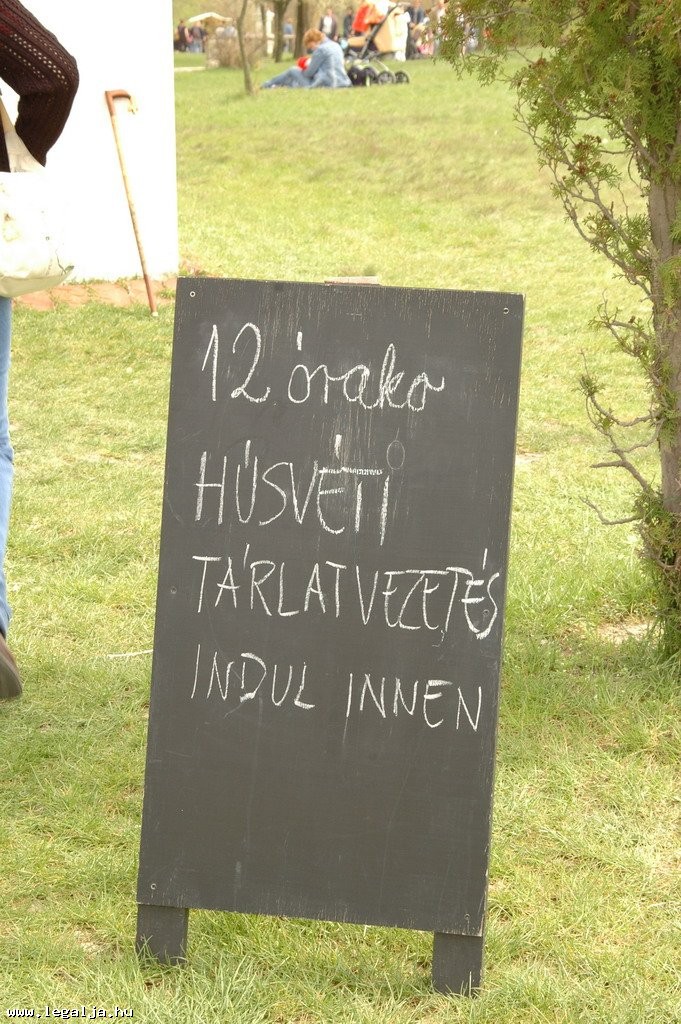 12 órakor
HÚSVÉTI
TÁRLATVEZETÉS
INDUL INNEN
www.legalja.hu